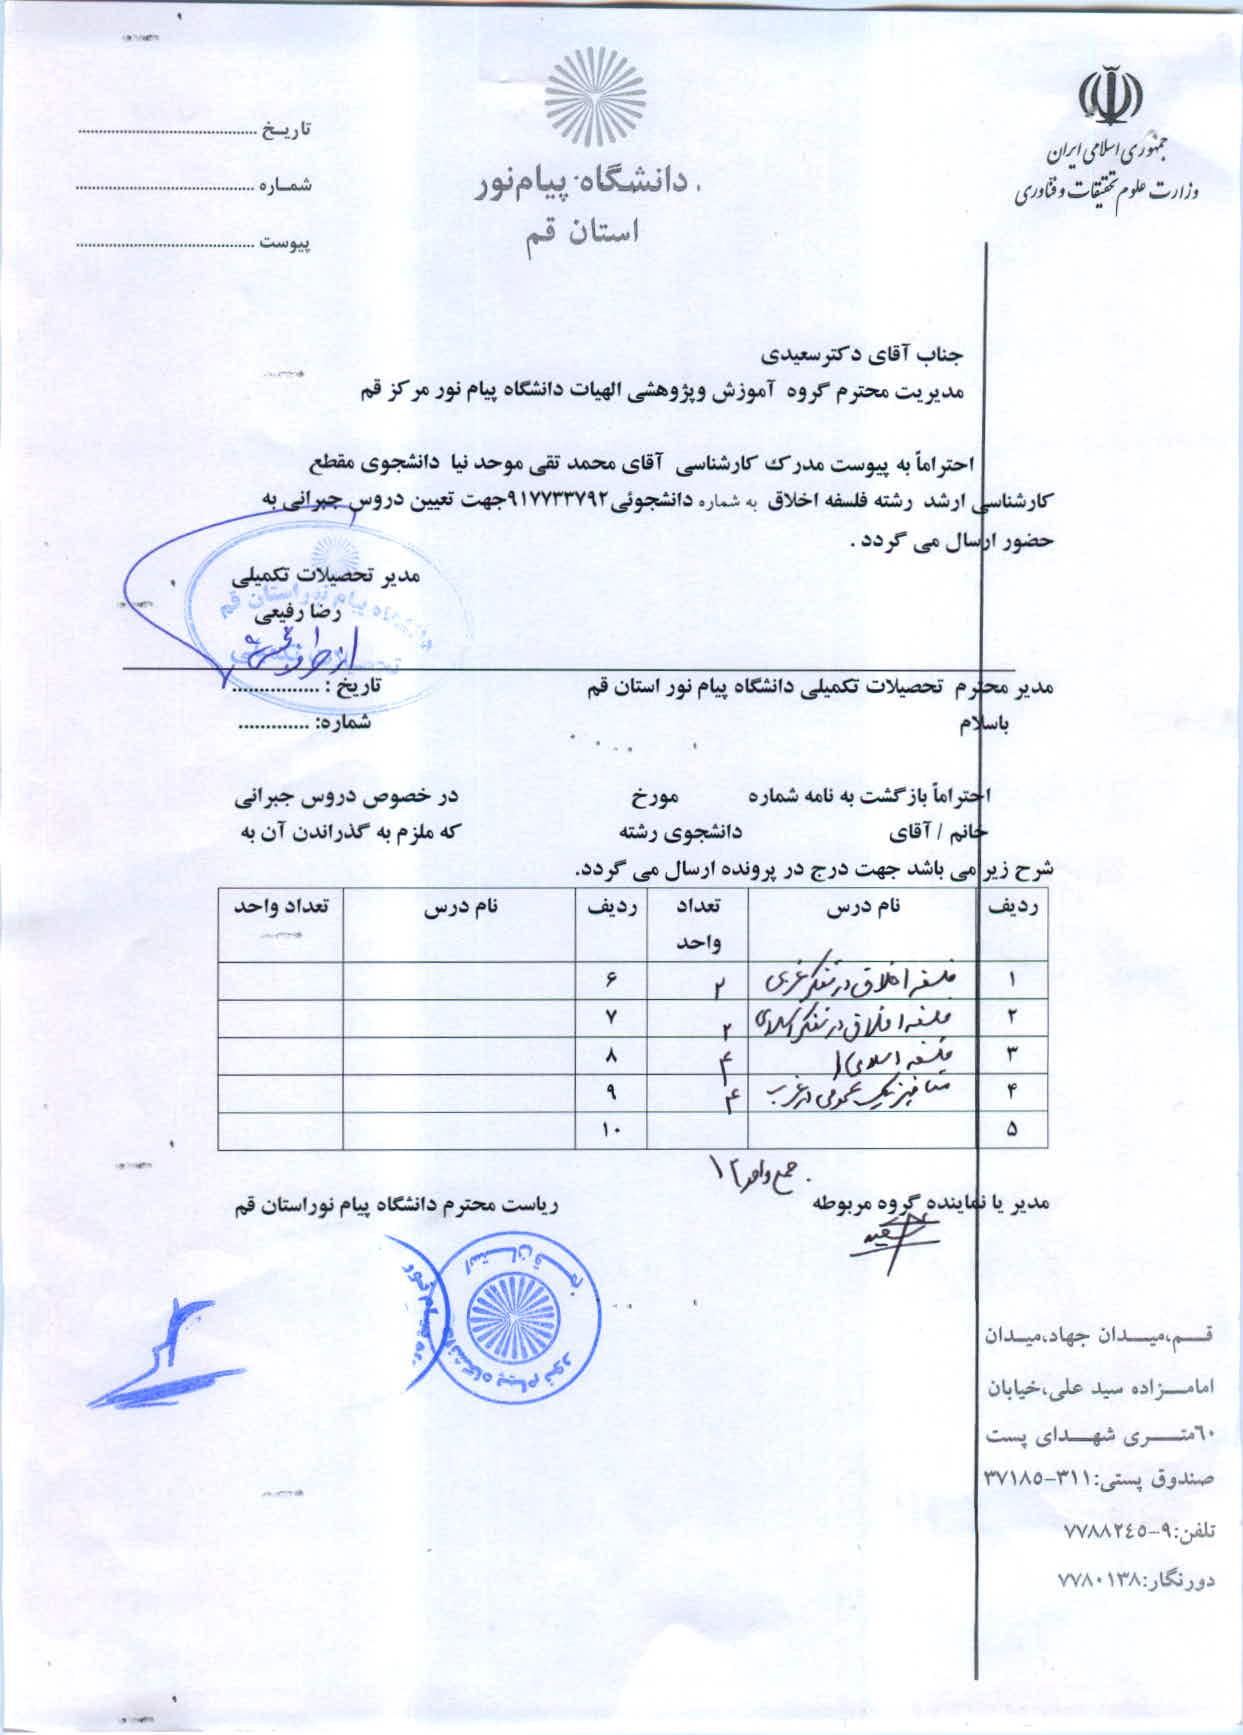 جمهوری اسلامی ایران
وزارت علوم تحقیقات و فناوری
دانشگاه پیام‌نور
استان قم
تاریخ ........................................
شماره ........................................
پیوست ........................................
جناب آقای دکترسعیدی
مدیریت محترم گروه آموزش وپژوهشی الهیات دانشگاه پیام نور مرکز قم
احتراماً به پیوست مدرک کارشناسی آقای محمد تقی موحد نیا دانشجوی مقطع
کارشناسی ارشد رشته فلسفه اخلاق به شماره دانشجوئی ۹۱۷۷۳۳۷۹۲جهت تعیین دروس جبرانی به
حضور ارسال می گردد .
مدیر تحصیلات تکمیلی
رضا رفیعی
دانشگاه پیام نور استان قم
تحصیلات تکمیلی
مدیر محترم تحصیلات تکمیلی دانشگاه پیام نور استان قم
تاریخ : ................
باسلام
شماره: .............
احتراماً بازگشت به نامه شماره مورخ در خصوص دروس جبرانی
خانم / آقای دانشجوی رشته که ملزم به گذراندن آن به
شرح زیر می باشد جهت درج در پرونده ارسال می گردد.
ردیف نام درس تعداد واحد ردیف نام درس تعداد واحد
۱ فلسفه اخلاق در تفکر غربی ۲ ۶
۲ فلسفه اخلاق در تفکر اسلامی ۲ ۷
۳ فلسفه اسلامی ۱ ۴ ۸
۴ متافیزیک عمومی در غرب ۴ ۹
۵ ۱۰
جمع واحد ۱۲
مدیر یا نماینده گروه مربوطه
ریاست محترم دانشگاه پیام نوراستان قم
دانشگاه پیام نور
استان قم
قم،میدان جهاد،میدان
امامزاده سید علی،خیابان
۶۰متری شهدای پست
صندوق پستی:۳۱۱-۳۷۱۸۵
تلفن:۹-۷۷۸۸۲٤٥
دورنگار:۷۷۸۰۱۳۸